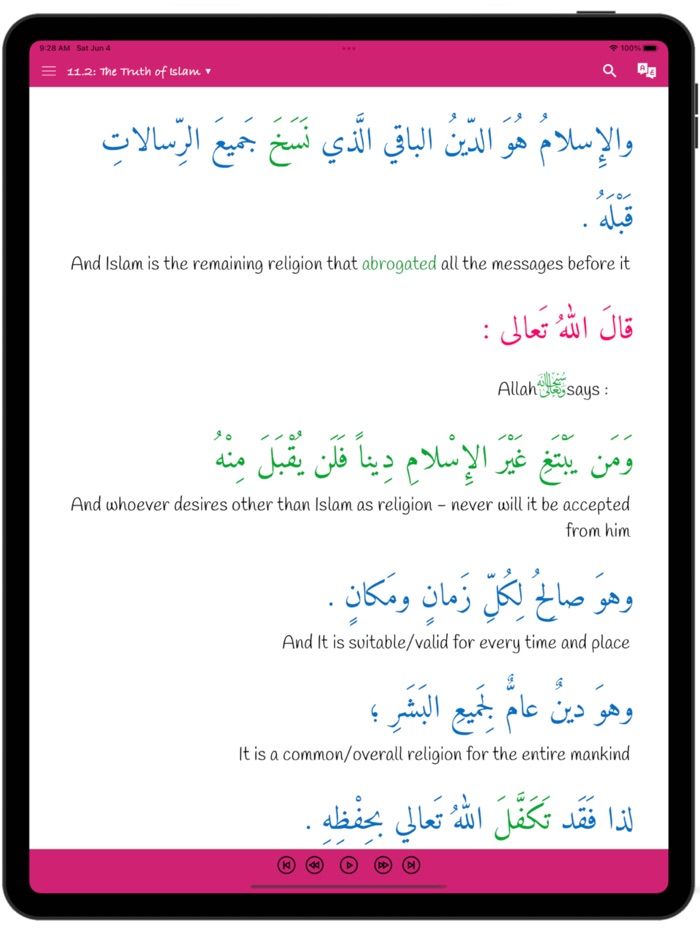 9:28 AM Sat Jun 4
100%
11.2: The Truth of Islam
والإِسلامُ هُوَ الدّينُ الباقي الَّذي نَسَخَ جَميعَ الرِّسالاتِ
قَبْلَهُ .
And Islam is the remaining religion that abrogated all the messages before it
قالَ اللهُ تَعالى :
Allah سُبْحَانَهُ وَتَعَالَى says :
وَمَن يَبْتَغِ غَيْرَ الإِسْلامِ دِيناً فَلَن يُقْبَلَ مِنْهُ
And whoever desires other than Islam as religion – never will it be accepted
from him
وهوَ صالِحُ لِكُلِّ زَمانٍ ومَكانٍ .
And It is suitable/valid for every time and place
وهوَ دينٌ عامٌّ لِجَميعِ البَشَرِ ؛
It is a common/overall religion for the entire mankind
لذا فَقَد تَكَفَّلَ اللهُ تَعالي بِحِفْظِهِ .